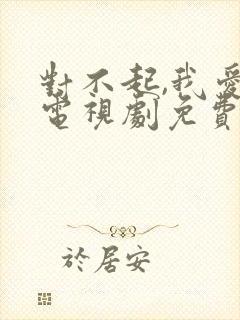 對不起,我愛
電視劇免費
於居安